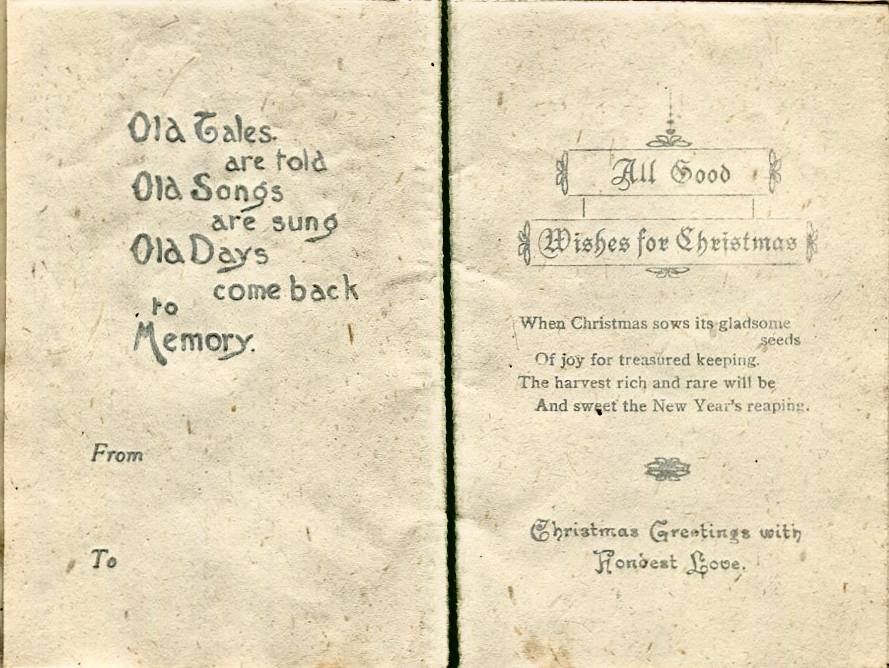 Old Tales.
are told
Old Songs
are sung
Old Days
come back
to
Memory.
From
To
All Good
Wishes for Christmas
When Christmas sows its gladsome
seeds
Of joy for treasured keeping.
The harvest rich and rare will be
And sweet the New Year's reaping.
Christmas Greetings with
Fondest Love.